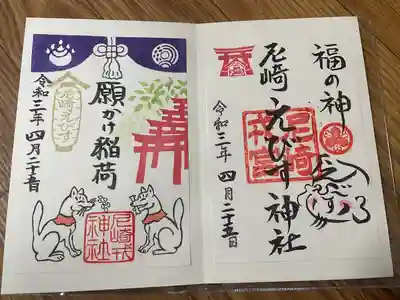 福の神
尼崎えびす神社
令和三年 四月二十五日
尼崎
神宮
願かけ稲荷
尼崎えびす
令和三年 四月二十五日
尼崎戎
神社